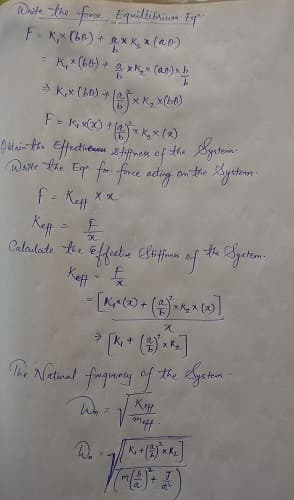 Write the force Equilibrium Eqn.
F = K₁×(bθ) + a/b × K₂ × (aθ)
= K₁×(bθ) + a/b × K₂ × (aθ) × b/b
⇒ K₁×(bθ) + (a/b)² × K₂ × (bθ)
F = K₁×(x) + (a/b)² × K₂ × (x)
Obtain the Effective stiffness of the System.
Write the Eqn for force acting on the System.
F = Keff × x.
Keff = F/x
Calculate the Effective Stiffness of the System.
Keff = F/x
= [K₁×(x) + (a/b)² × K₂ × (x)] / x
⇒ [K₁ + (a/b)² × K₂]
The Natural frequency of the System.
Wn = √(Keff / meff.)
Wn = √([K₁ + (a/b)² × K₂] / (m(b/a)² + J/a²))